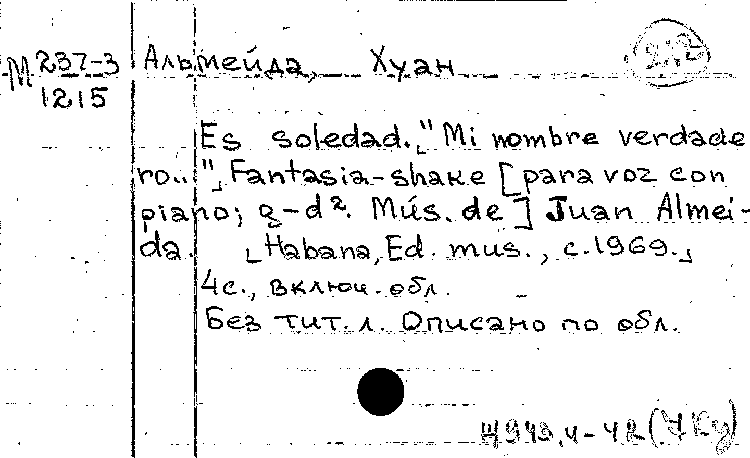 М 237-3
1215
Альмейда, Хуан
212
Es soledad. "Mi nombre verdade
ro.." Fantasia-shake [para voz con
piano; g-d². Mús. de] Juan Almei-
da. [Habana, Ed. mus., c. 1969.]
4с., включ. обл.
Без тит. л. Описано по обл.
Щ943.4-42(7Ку)